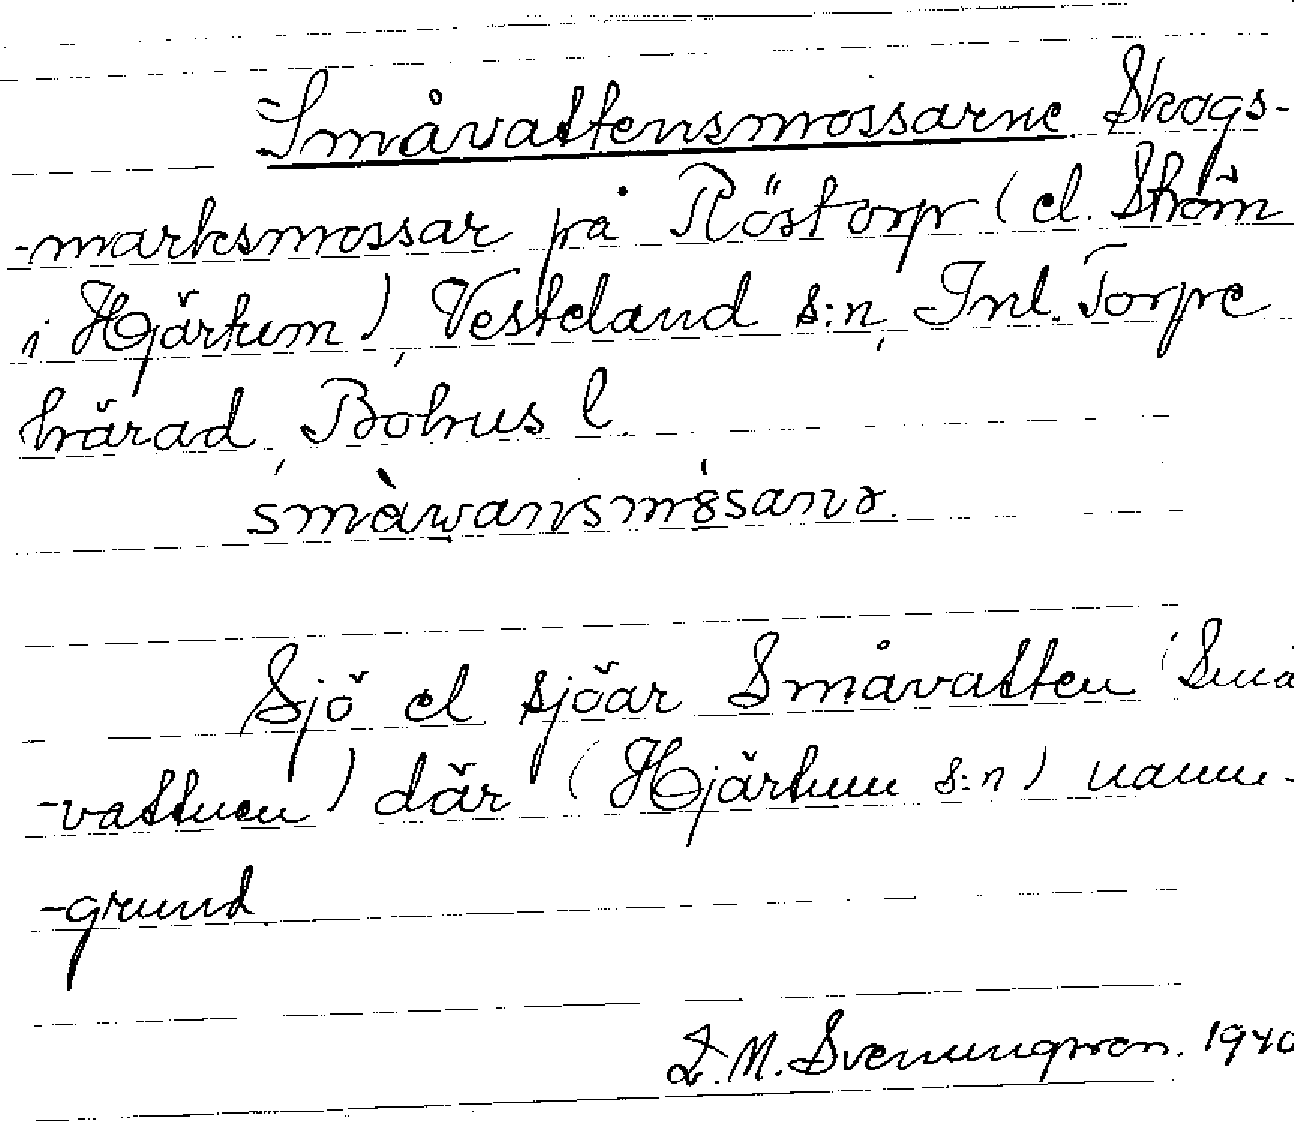 Småvattensmossarne Skogs-
-marksmossar på Röstorp (el. Ström
i Hjärtum), Vesteland s:n, Inl. Torpe
härad, Bohus l.
smàwansmósana.
Sjö el sjöar Småvatten (Små
-vattnen) där (Hjärtum s:n) namn-
-grund
L. M. Svenungsson. 1940